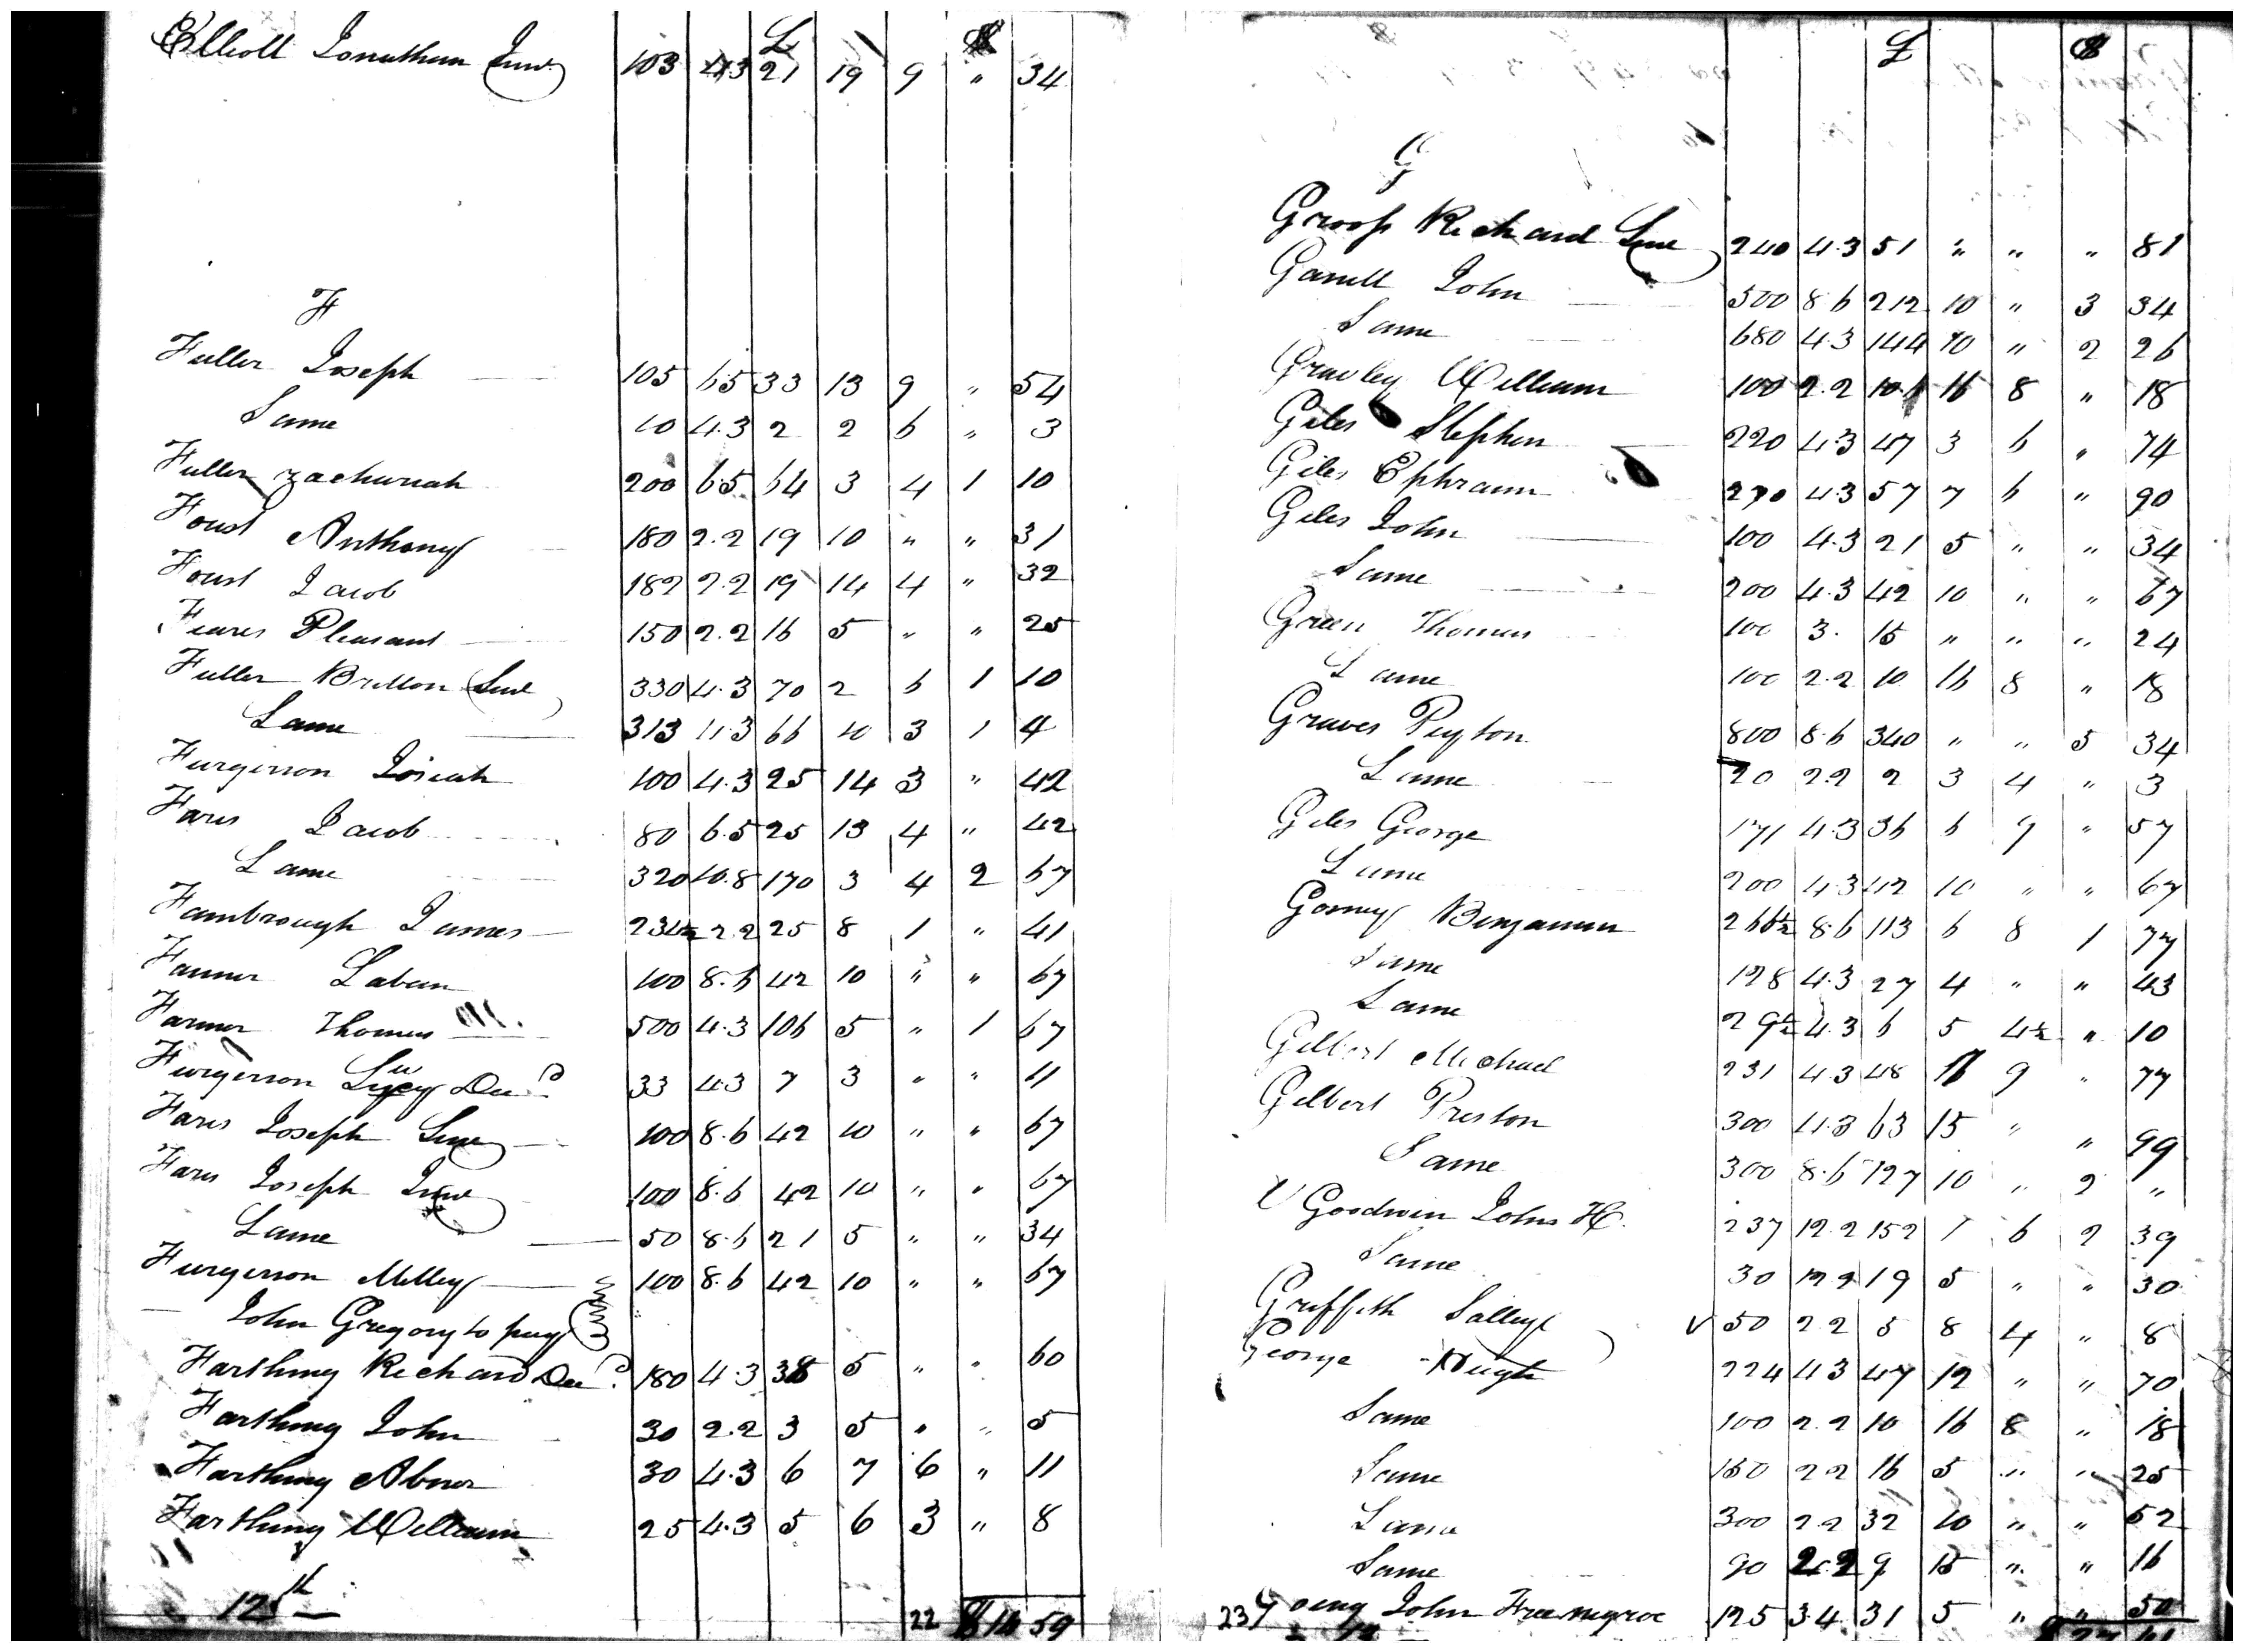 £ $
Elliott Jonathan Junr 103 4.3 21 19 9 " 34
F
Fuller Joseph 105 6.5 33 13 9 " 54
Same 10 4.3 2 2 6 " 3
Fuller Zachariah 200 6.5 64 3 4 1 10
Foust Anthony 180 2.2 19 10 " " 31
Foust Jacob 182 2.2 19 14 4 " 32
Feares Pleasant 150 2.2 16 5 " " 25
Fuller Britton Senr 330 4.3 70 2 6 1 10
Same 313 4.3 66 10 3 1 4
Furgerson Josiah 100 4.3 25 14 3 " 42
Faris Jacob 80 6.5 25 13 4 " 42
Same 320 10.8 170 3 4 2 67
Fambrough James 234½ 2.2 25 8 1 " 41
Farmer Laban 100 8.6 42 10 " " 67
Farmer Thomas 500 4.3 106 5 " 1 67
Furgerson Lucy Decd 33 4.3 7 3 " " 11
Faris Joseph Senr 100 8.6 42 10 " " 67
Faris Joseph Junr 100 8.6 42 10 " " 67
Same 50 8.6 21 5 " " 34
Furgerson Milley 100 8.6 42 10 " " 67
John Gregory to pay
Farthing Richard Decd 180 4.3 38 5 " " 60
Farthing John 30 2.2 3 5 " " 5
Farthing Abner 30 4.3 6 7 6 " 11
Farthing William 25 4.3 5 6 3 " 8
12th 22 $16 59
£ $
G
Richard Senr 240 4.3 51 " " " 81
John 500 8.6 212 10 " 3 34
Same 680 4.3 144 10 " 2 26
Gravley William 100 2.2 10 16 8 " 18
Giles Stephen 220 4.3 47 3 6 " 74
Giles Ephraim 270 4.3 57 7 6 " 90
Giles John 100 4.3 21 5 " " 34
Same 200 4.3 42 10 " " 67
Green Thomas 100 3. 15 " " " 24
Same 100 2.2 10 16 8 " 18
Graves Peyton 800 8.6 340 " " 5 34
Same 20 2.2 2 3 4 " 3
Giles George 171 4.3 36 6 9 " 57
Same 200 4.3 42 10 " " 67
Benjamin 266½ 8.6 113 6 8 1 77
Same 128 4.3 27 4 " " 43
Same 29½ 4.3 6 5 4½ " 10
Gilbert Michael 231 4.3 48 16 9 " 77
Gilbert Preston 300 4.3 63 15 " " 99
Same 300 8.6 127 10 " 2 "
Goodwin John H. 237 12.2 152 1 6 2 39
Same 30 12.2 19 5 " " 30
Griffith Salley 50 2.2 5 8 4 " 8
George Hugh 224 4.3 47 12 " " 70
Same 100 2.2 10 16 8 " 18
Same 150 2.2 16 5 " " 25
Same 300 2.2 32 10 " " 52
Same 90 2.2 9 15 " " 16
23 Going John Freenegroe 125 3.4 31 5 " " 50